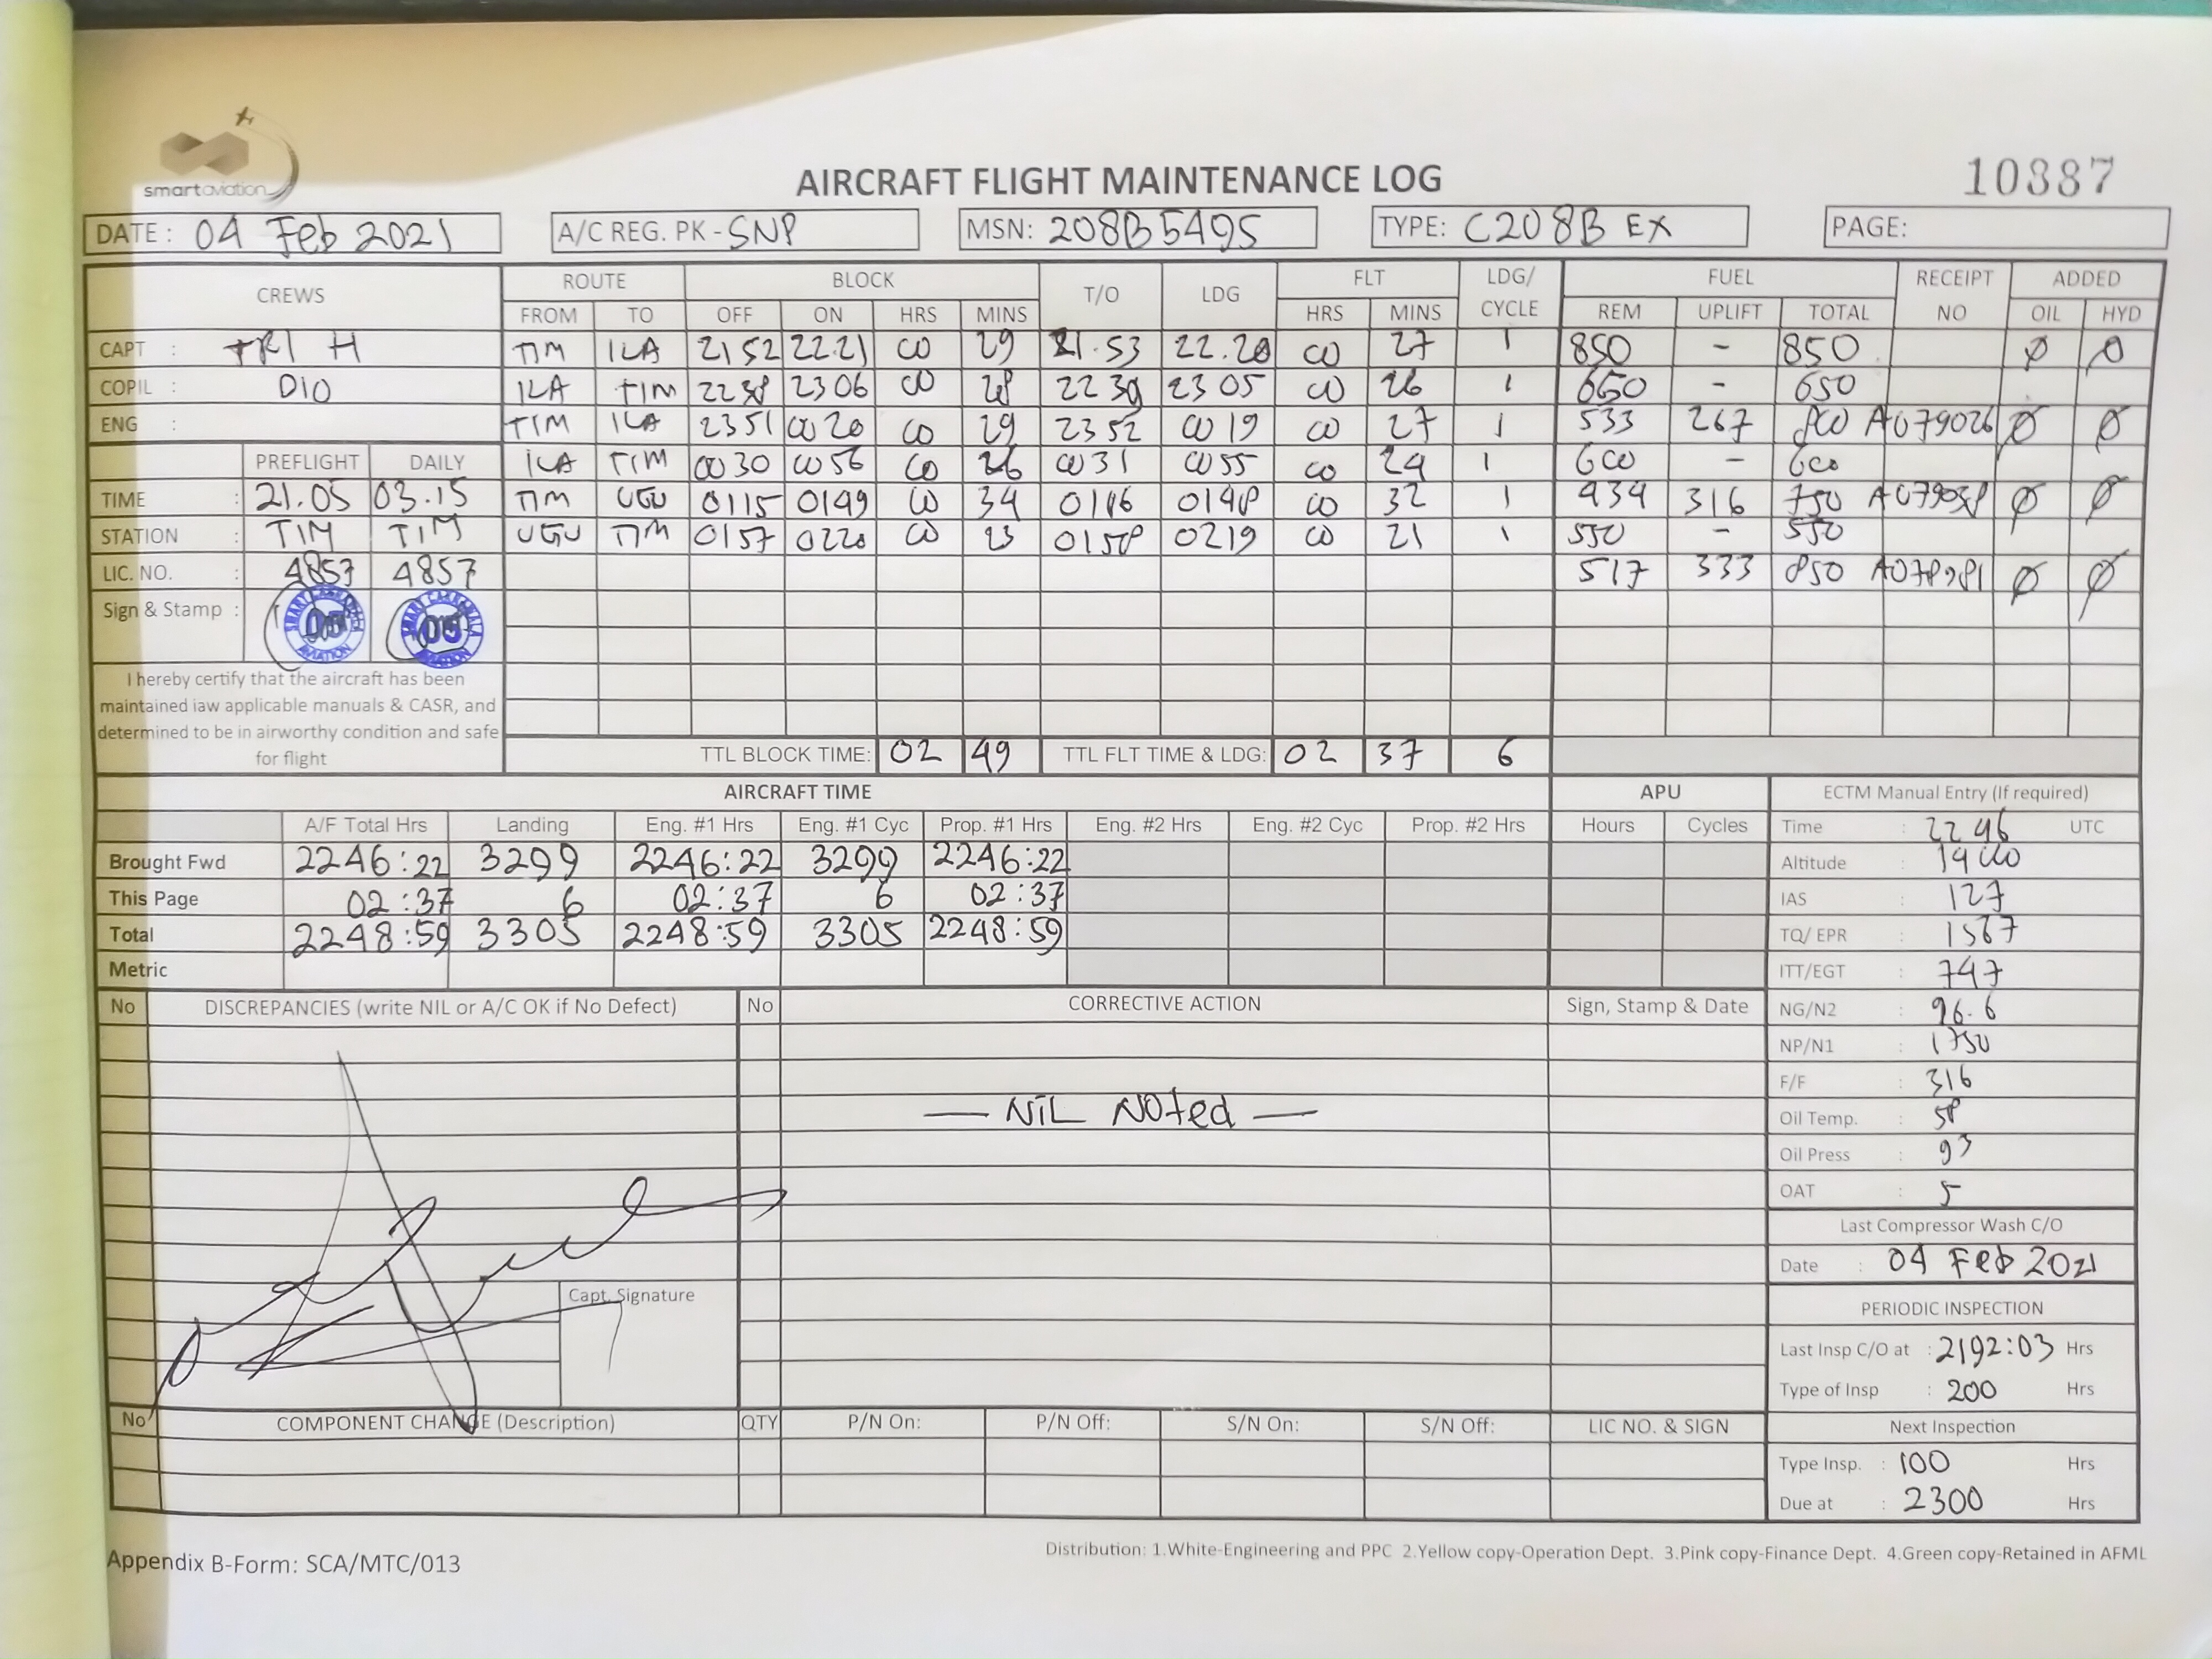 smart aviation
AIRCRAFT FLIGHT MAINTENANCE LOG
10887
DATE : 04 Feb 2021 A/C REG. PK - SNP MSN: 208B5495 TYPE: C208B EX PAGE:
CREWS ROUTE BLOCK T/O LDG FLT LDG/ CYCLE FUEL RECEIPT NO ADDED
FROM TO OFF ON HRS MINS HRS MINS REM UPLIFT TOTAL OIL HYD
CAPT : TRI H TIM ILA 2152 22.21 00 29 21.53 22.20 00 27 1 850 - 850 Ø Ø
COPIL : DIO ILA TIM 2238 2306 00 28 2239 2305 00 26 1 650 - 650
ENG : TIM ILA 2351 0020 00 29 2352 0019 00 27 1 533 267 800 A079026 Ø Ø
PREFLIGHT DAILY ILA TIM 0030 0056 00 26 0031 0055 00 24 1 600 - 600
TIME : 21.05 03.15 TIM UGU 0115 0149 00 34 0116 0148 00 32 1 434 316 750 Ø Ø
STATION : TIM TIM UGU TIM 0157 0220 00 23 0158 0219 00 21 1 550 - 550
LIC. NO. : 4857 4857 517 333 850 Ø Ø
Sign & Stamp : 05 05
I hereby certify that the aircraft has been
maintained iaw applicable manuals & CASR, and
determined to be in airworthy condition and safe
for flight
TTL BLOCK TIME: 02 49 TTL FLT TIME & LDG: 02 37 6
AIRCRAFT TIME APU ECTM Manual Entry (If required)
A/F Total Hrs Landing Eng. #1 Hrs Eng. #1 Cyc Prop. #1 Hrs Eng. #2 Hrs Eng. #2 Cyc Prop. #2 Hrs Hours Cycles Time : 2246 UTC
Brought Fwd 2246:22 3299 2246:22 3299 2246:22 Altitude :
This Page 02:37 6 02:37 6 02:37 IAS : 127
Total 2248:59 3305 2248:59 3305 2248:59 TQ/ EPR : 1567
Metric ITT/EGT : 747
No DISCREPANCIES (write NIL or A/C OK if No Defect) No CORRECTIVE ACTION Sign, Stamp & Date NG/N2 : 96.6
NP/N1 : 1750
F/F : 316
— NIL Noted —
Oil Temp. : 58
Oil Press : 93
OAT : 5
Last Compressor Wash C/O
Date : 04 Feb 2021
Capt. Signature
PERIODIC INSPECTION
Last Insp C/O at : 2192:03 Hrs
Type of Insp : 200 Hrs
No COMPONENT CHANGE (Description) QTY P/N On: P/N Off: S/N On: S/N Off: LIC NO. & SIGN Next Inspection
Type Insp. : 100 Hrs
Due at : 2300 Hrs
Appendix B-Form: SCA/MTC/013
Distribution: 1.White-Engineering and PPC 2.Yellow copy-Operation Dept. 3.Pink copy-Finance Dept. 4.Green copy-Retained in AFML